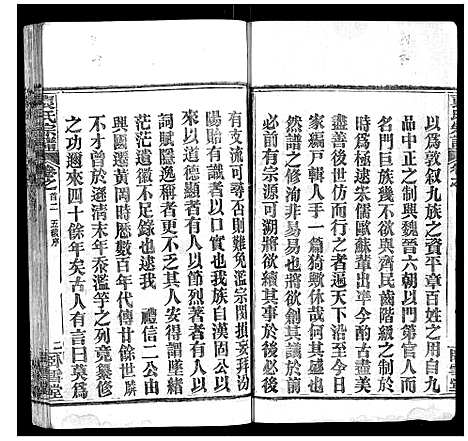 以爲敦叙九族之資平章百姓之用自九
品中正之制興魏晉六朝以門第官人而
名門巨族幾不欲與齊民齒階級之制於
時爲極逮宋儒歐蘇輩出準今酌古盡美
盡善後世仿而行之者遍天下沿至今日
家編戸輯人手一篇猗歟休哉何其盛也
然譜之修洵非易易也必前有作者後
必前有宗源可溯將欲續後於後必後
有支流可尋否則難免濫宗閥損妄拜汾
陽貽有識者以口實也我族自漢固公以
來以道德顯者有人以節烈著者有人以
詞賦隱逸稱者更不乏其人安得謂墜緒
茫茫遺徽不足錄也逮我 禮信二公由
興國遷黄岡時歷數百年代傳廿餘世
不才曾於遜清末年忝濫竽之列竟纂修
之功邇來四十餘年矣古人有言曰莫爲
袁氏宗譜
卷之首二
五級序
二
臥雪堂